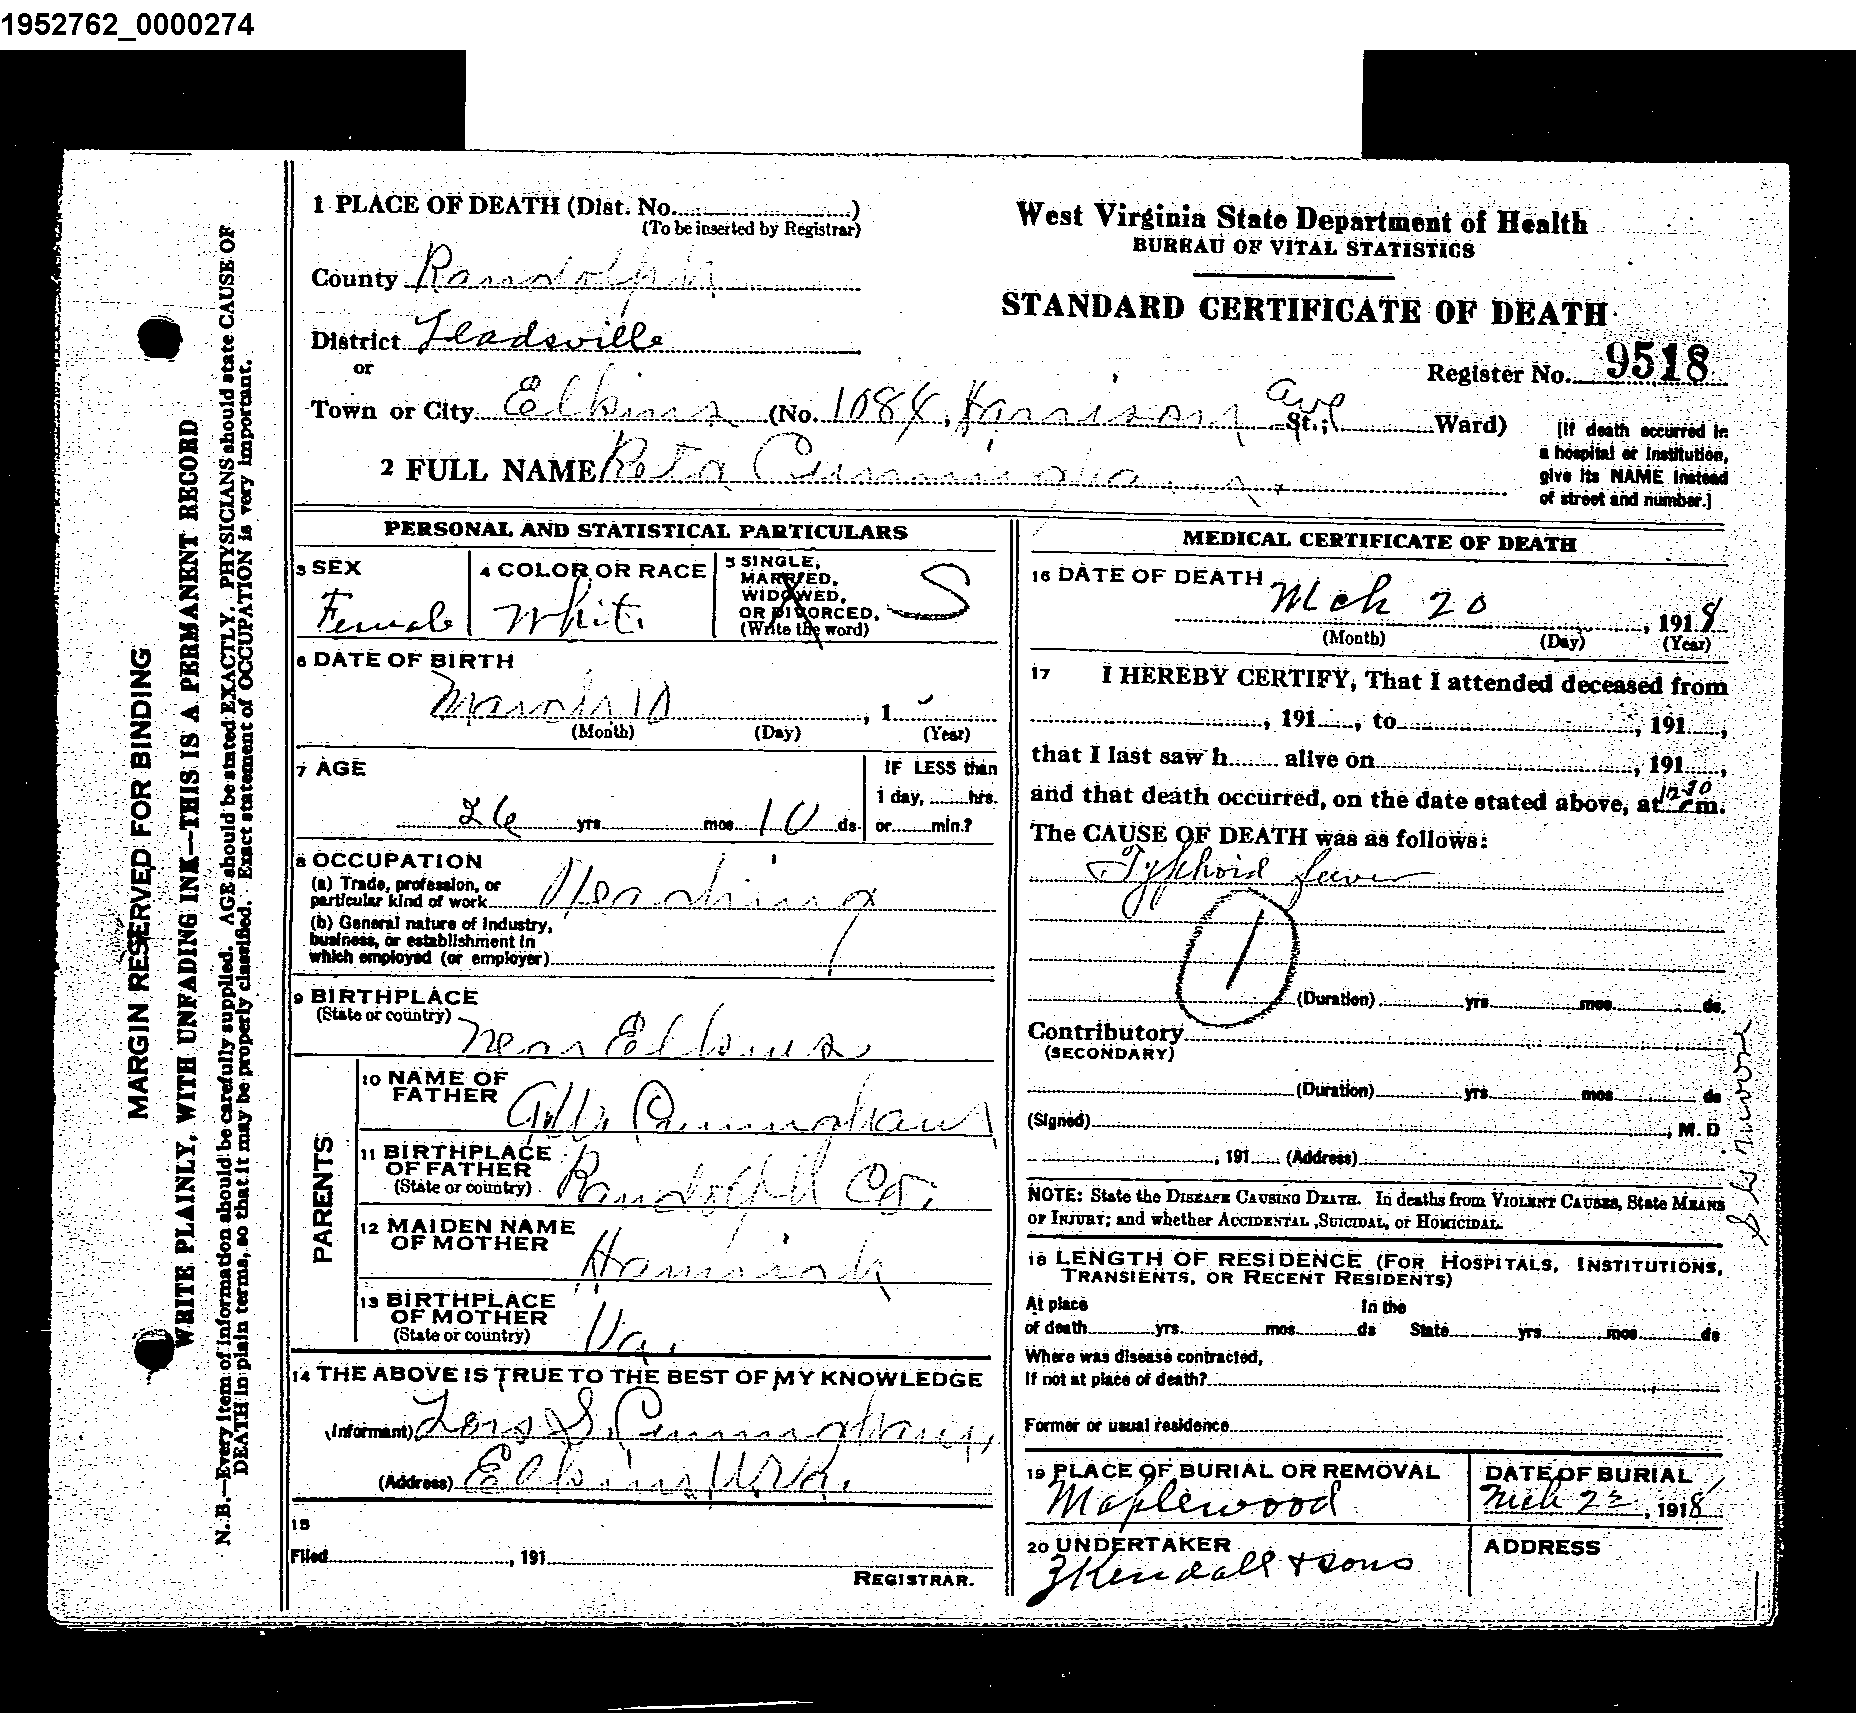 1952762_0000274
MARGIN RESERVED FOR BINDING
WRITE PLAINLY, WITH UNFADING INK—THIS IS A PERMANENT RECORD
N. B.—Every item of information should be carefully supplied. AGE should be stated EXACTLY. PHYSICIANS should state CAUSE OF
DEATH in plain terms, so that it may be properly classified. Exact statement of OCCUPATION is very important.
1 PLACE OF DEATH (Dist. No. )
(To be inserted by Registrar)
County Randolph
District Leadsville
or
Town or City Elkins (No. 1084, Harrison Ave St.; Ward)
2 FULL NAME Reta Cunningham.
West Virginia State Department of Health
BUREAU OF VITAL STATISTICS
STANDARD CERTIFICATE OF DEATH
Register No. 9518
[If death occurred in
a hospital or institution,
give its NAME instead
of street and number.]
PERSONAL AND STATISTICAL PARTICULARS
3 SEX
Female
4 COLOR OR RACE
White
5 SINGLE,
MARRIED,
WIDOWED,
OR DIVORCED,
(Write the word)
S
6 DATE OF BIRTH
March 10 , 1
(Month) (Day) (Year)
7 AGE
26 yrs mos 10 ds
IF LESS than
1 day, hrs.
or min.?
8 OCCUPATION
(a) Trade, profession, or
particular kind of work Teaching
(b) General nature of industry,
business, or establishment in
which employed (or employer)
9 BIRTHPLACE
(State or country)
near Elkins
PARENTS
10 NAME OF
FATHER
Cunningham
11 BIRTHPLACE
OF FATHER
(State or country) Randolph Co.
12 MAIDEN NAME
OF MOTHER
13 BIRTHPLACE
OF MOTHER
(State or country) Va.
14 THE ABOVE IS TRUE TO THE BEST OF MY KNOWLEDGE
(Informant) S. Cunningham,
(Address) Elkins W.Va.
15
Filed , 191
REGISTRAR.
MEDICAL CERTIFICATE OF DEATH
16 DATE OF DEATH
Mch 20 , 1918
(Month) (Day) (Year)
17 I HEREBY CERTIFY, That I attended deceased from
, 191 , to , 191 ,
that I last saw h alive on , 191 ,
and that death occurred, on the date stated above, at 12-30 m.
The CAUSE OF DEATH was as follows:
Typhoid fever
1
(Duration) yrs mos ds.
Contributory
(SECONDARY)
(Duration) yrs mos ds
(Signed) , M. D
, 191 (Address)
NOTE: State the DISEASE CAUSING DEATH. In deaths from VIOLENT CAUSES, State MEANS
OF INJURY; and whether ACCIDENTAL ,SUICIDAL, or HOMICIDAL.
18 LENGTH OF RESIDENCE (FOR HOSPITALS, INSTITUTIONS,
TRANSIENTS, OR RECENT RESIDENTS)
At place In the
of death yrs. mos ds State yrs. mos ds
Where was disease contracted,
If not at place of death?
Former or usual residence
19 PLACE OF BURIAL OR REMOVAL
Maplewood
DATE OF BURIAL
Mch 22, 1918
20 UNDERTAKER
Kendall & sons
ADDRESS